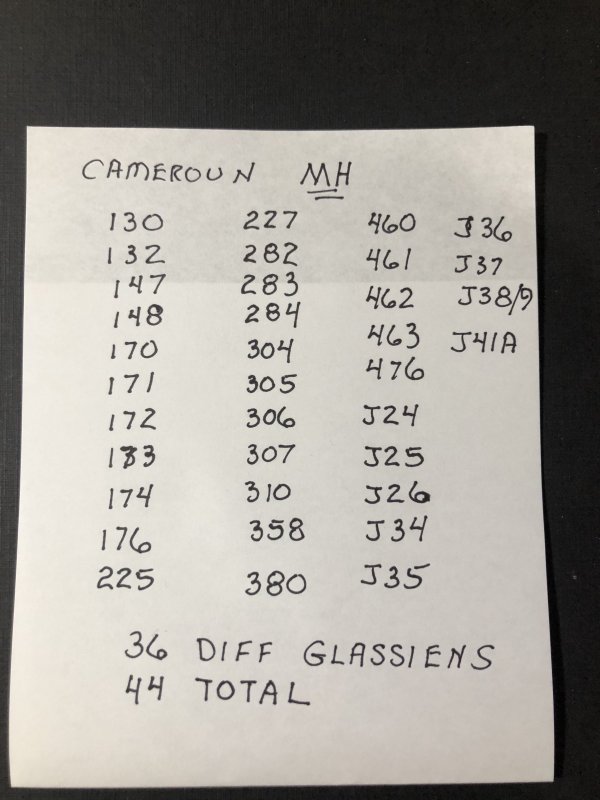 CAMEROUN MH
130 227 460 J36
132 282 461 J37
147 283 462 J38/9
148 284 463 J41A
170 304 476
171 305
172 306 J24
173 307 J25
174 310 J26
176 358 J34
225 380 J35
36 DIFF GLASSIENS
44 TOTAL